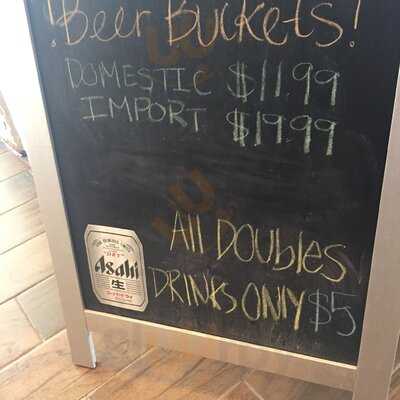 !Beer Buckets!
DOMESTIC $11.99
IMPORT $19.99
All DOUBLES
DRINKS ONlY $5
Asahi
生